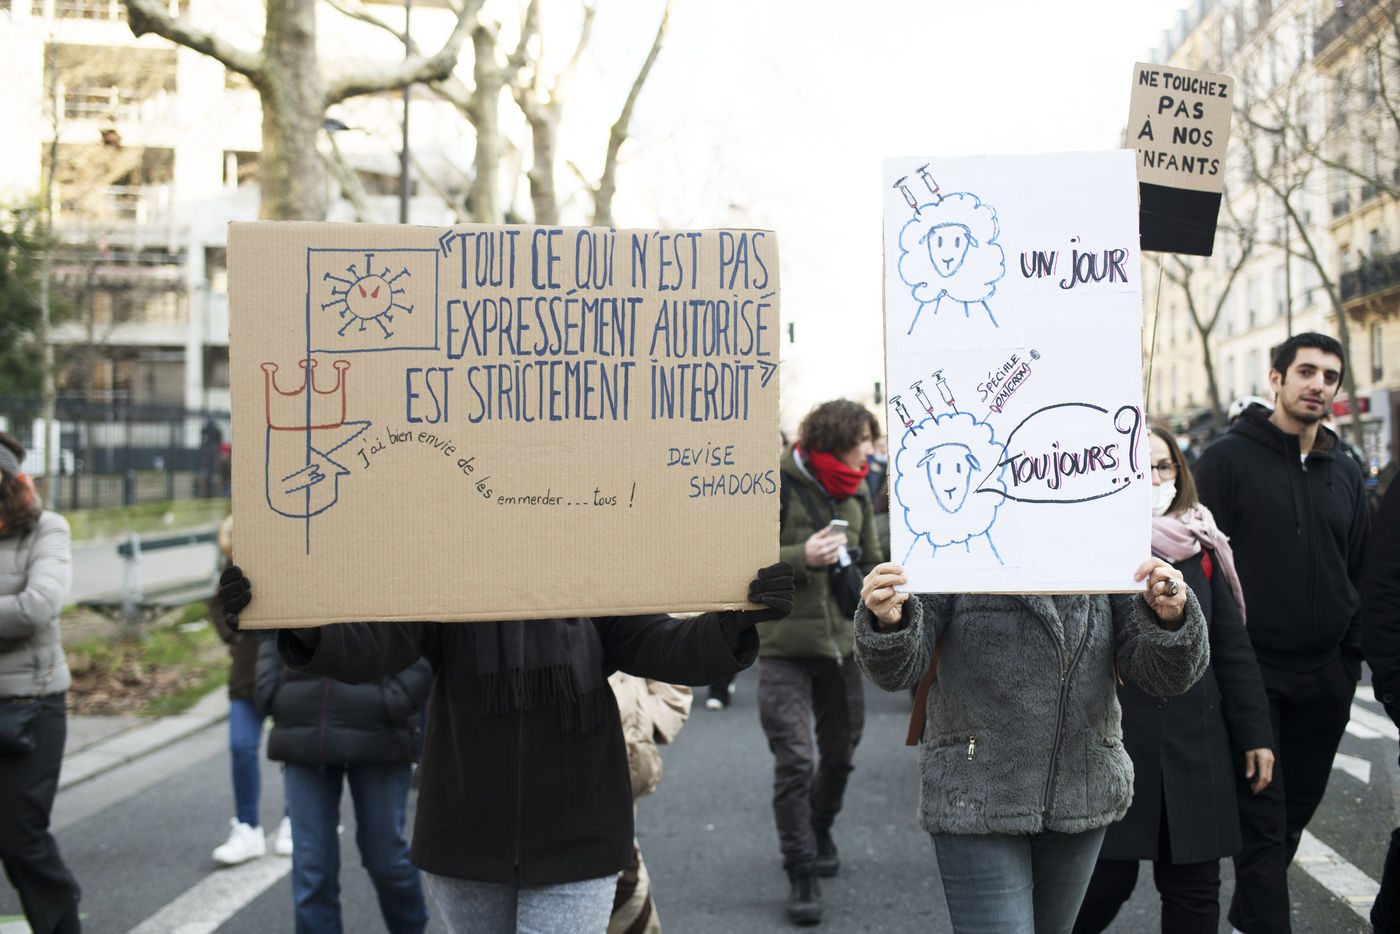 «TOUT CE QUI N'EST PAS
EXPRESSÉMENT AUTORISÉ
EST STRICTEMENT INTERDIT»
J'ai bien envie de les emmerder... tous !
DEVISE
SHADOKS
UN JOUR
SPÉCIALE
OMICRON
TOUJOURS ?...
NE TOUCHEZ
PAS
À NOS
NFANTS